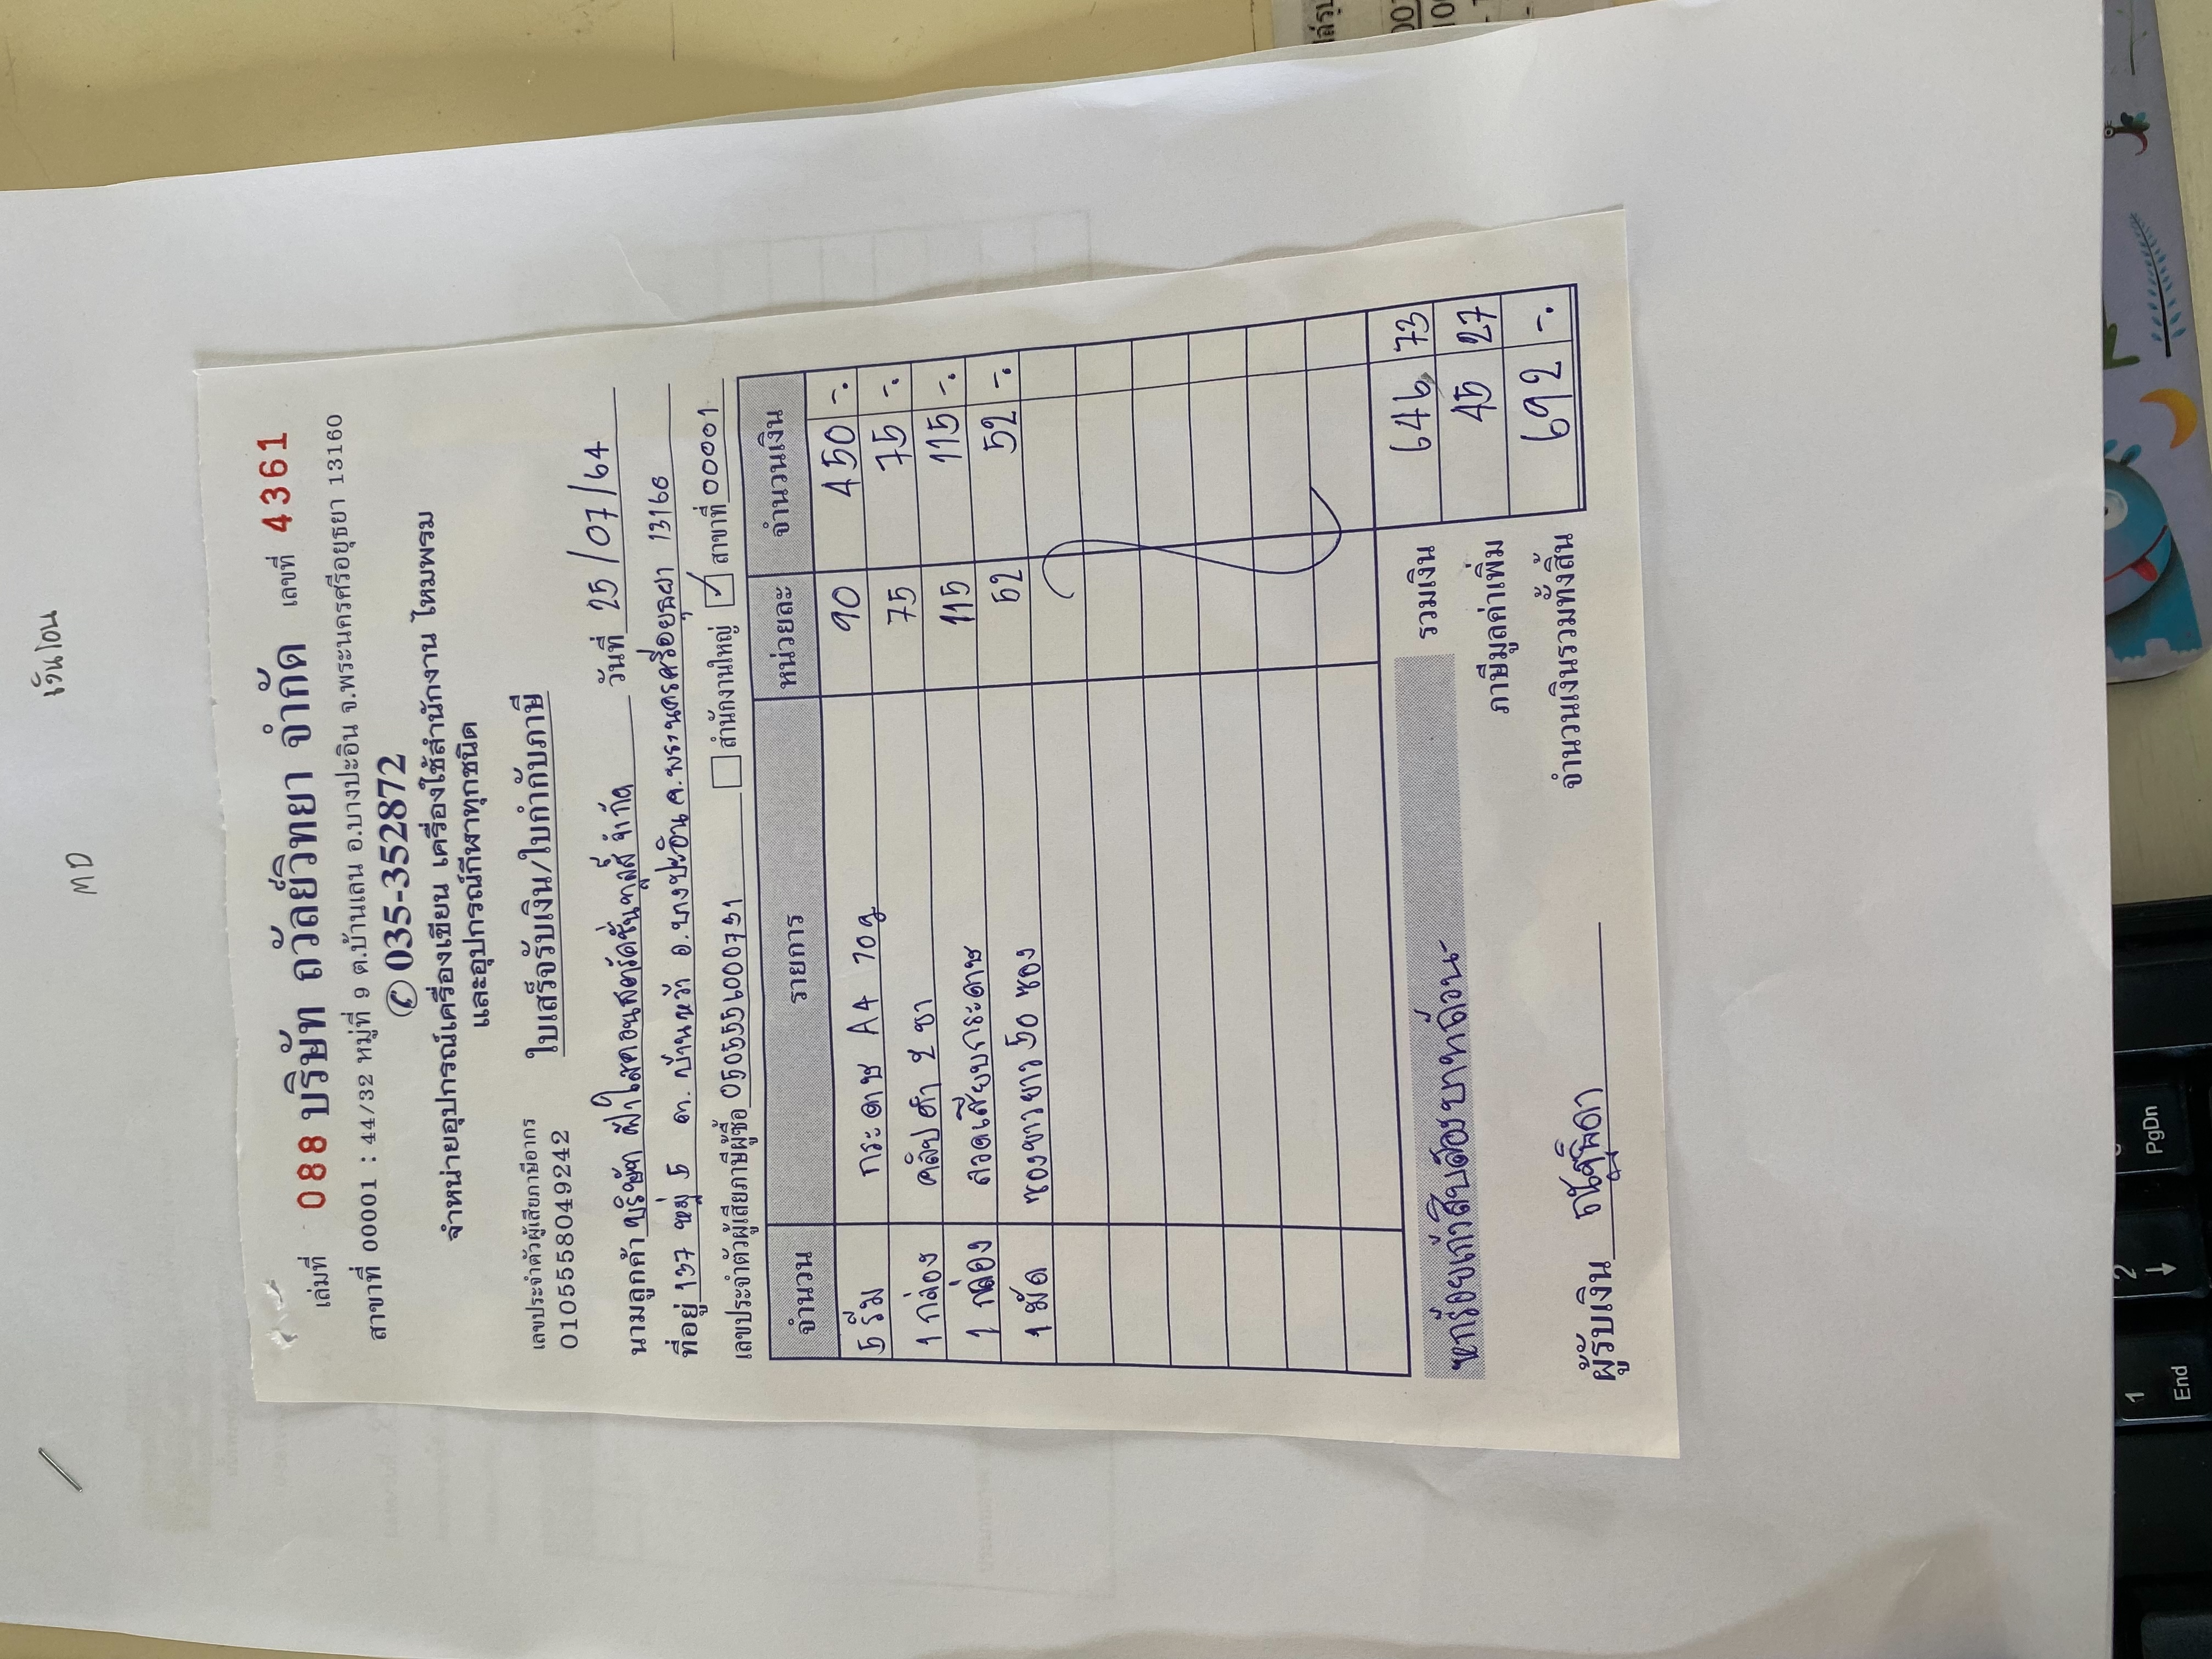 เงินโอน
MD
เล่มที่ 088 บริษัท ถวัลย์วิทยา จำกัด เลขที่ 4361
สาขาที่ 00001 : 44/32 หมู่ที่ 9 ต.บ้านเลน อ.บางปะอิน จ.พระนครศรีอยุธยา 13160
✆ 035-352872
จำหน่ายอุปกรณ์เครื่องเขียน เครื่องใช้สำนักงาน ไหมพรม
และอุปกรณ์กีฬาทุกชนิด
เลขประจำตัวผู้เสียภาษีอากร
0105558049242
ใบเสร็จรับเงิน/ใบกำกับภาษี
นามลูกค้า บริษัท ฟ้าใสคอนสตรัคชั่นทูลส์ จำกัด วันที่ 25/07/64
ที่อยู่ 137 หมู่ 5 ต. บ้านหว้า อ.บางปะอิน จ.พระนครศรีอยุธยา 13160
เลขประจำตัวผู้เสียภาษีผู้ซื้อ 0505556000731 สำนักงานใหญ่ ✓ สาขาที่ 00001
จำนวน รายการ หน่วยละ จำนวนเงิน
5 รีม กระดาษ A4 70g 90 450 -.
1 กล่อง คลิปดำ 2 ขา 75 75 -.
1 กล่อง ลวดเสียบกระดาษ 115 115 -.
1 มัด ซองขาวยาว 50 ซอง 52 52 -.
หกร้อยเก้าสิบสองบาทถ้วน- รวมเงิน 646 73
ภาษีมูลค่าเพิ่ม 45 27
จำนวนเงินรวมทั้งสิ้น 692 -.
ผู้รับเงิน ณัฐธิดา
1
End
2
↓
PgDn